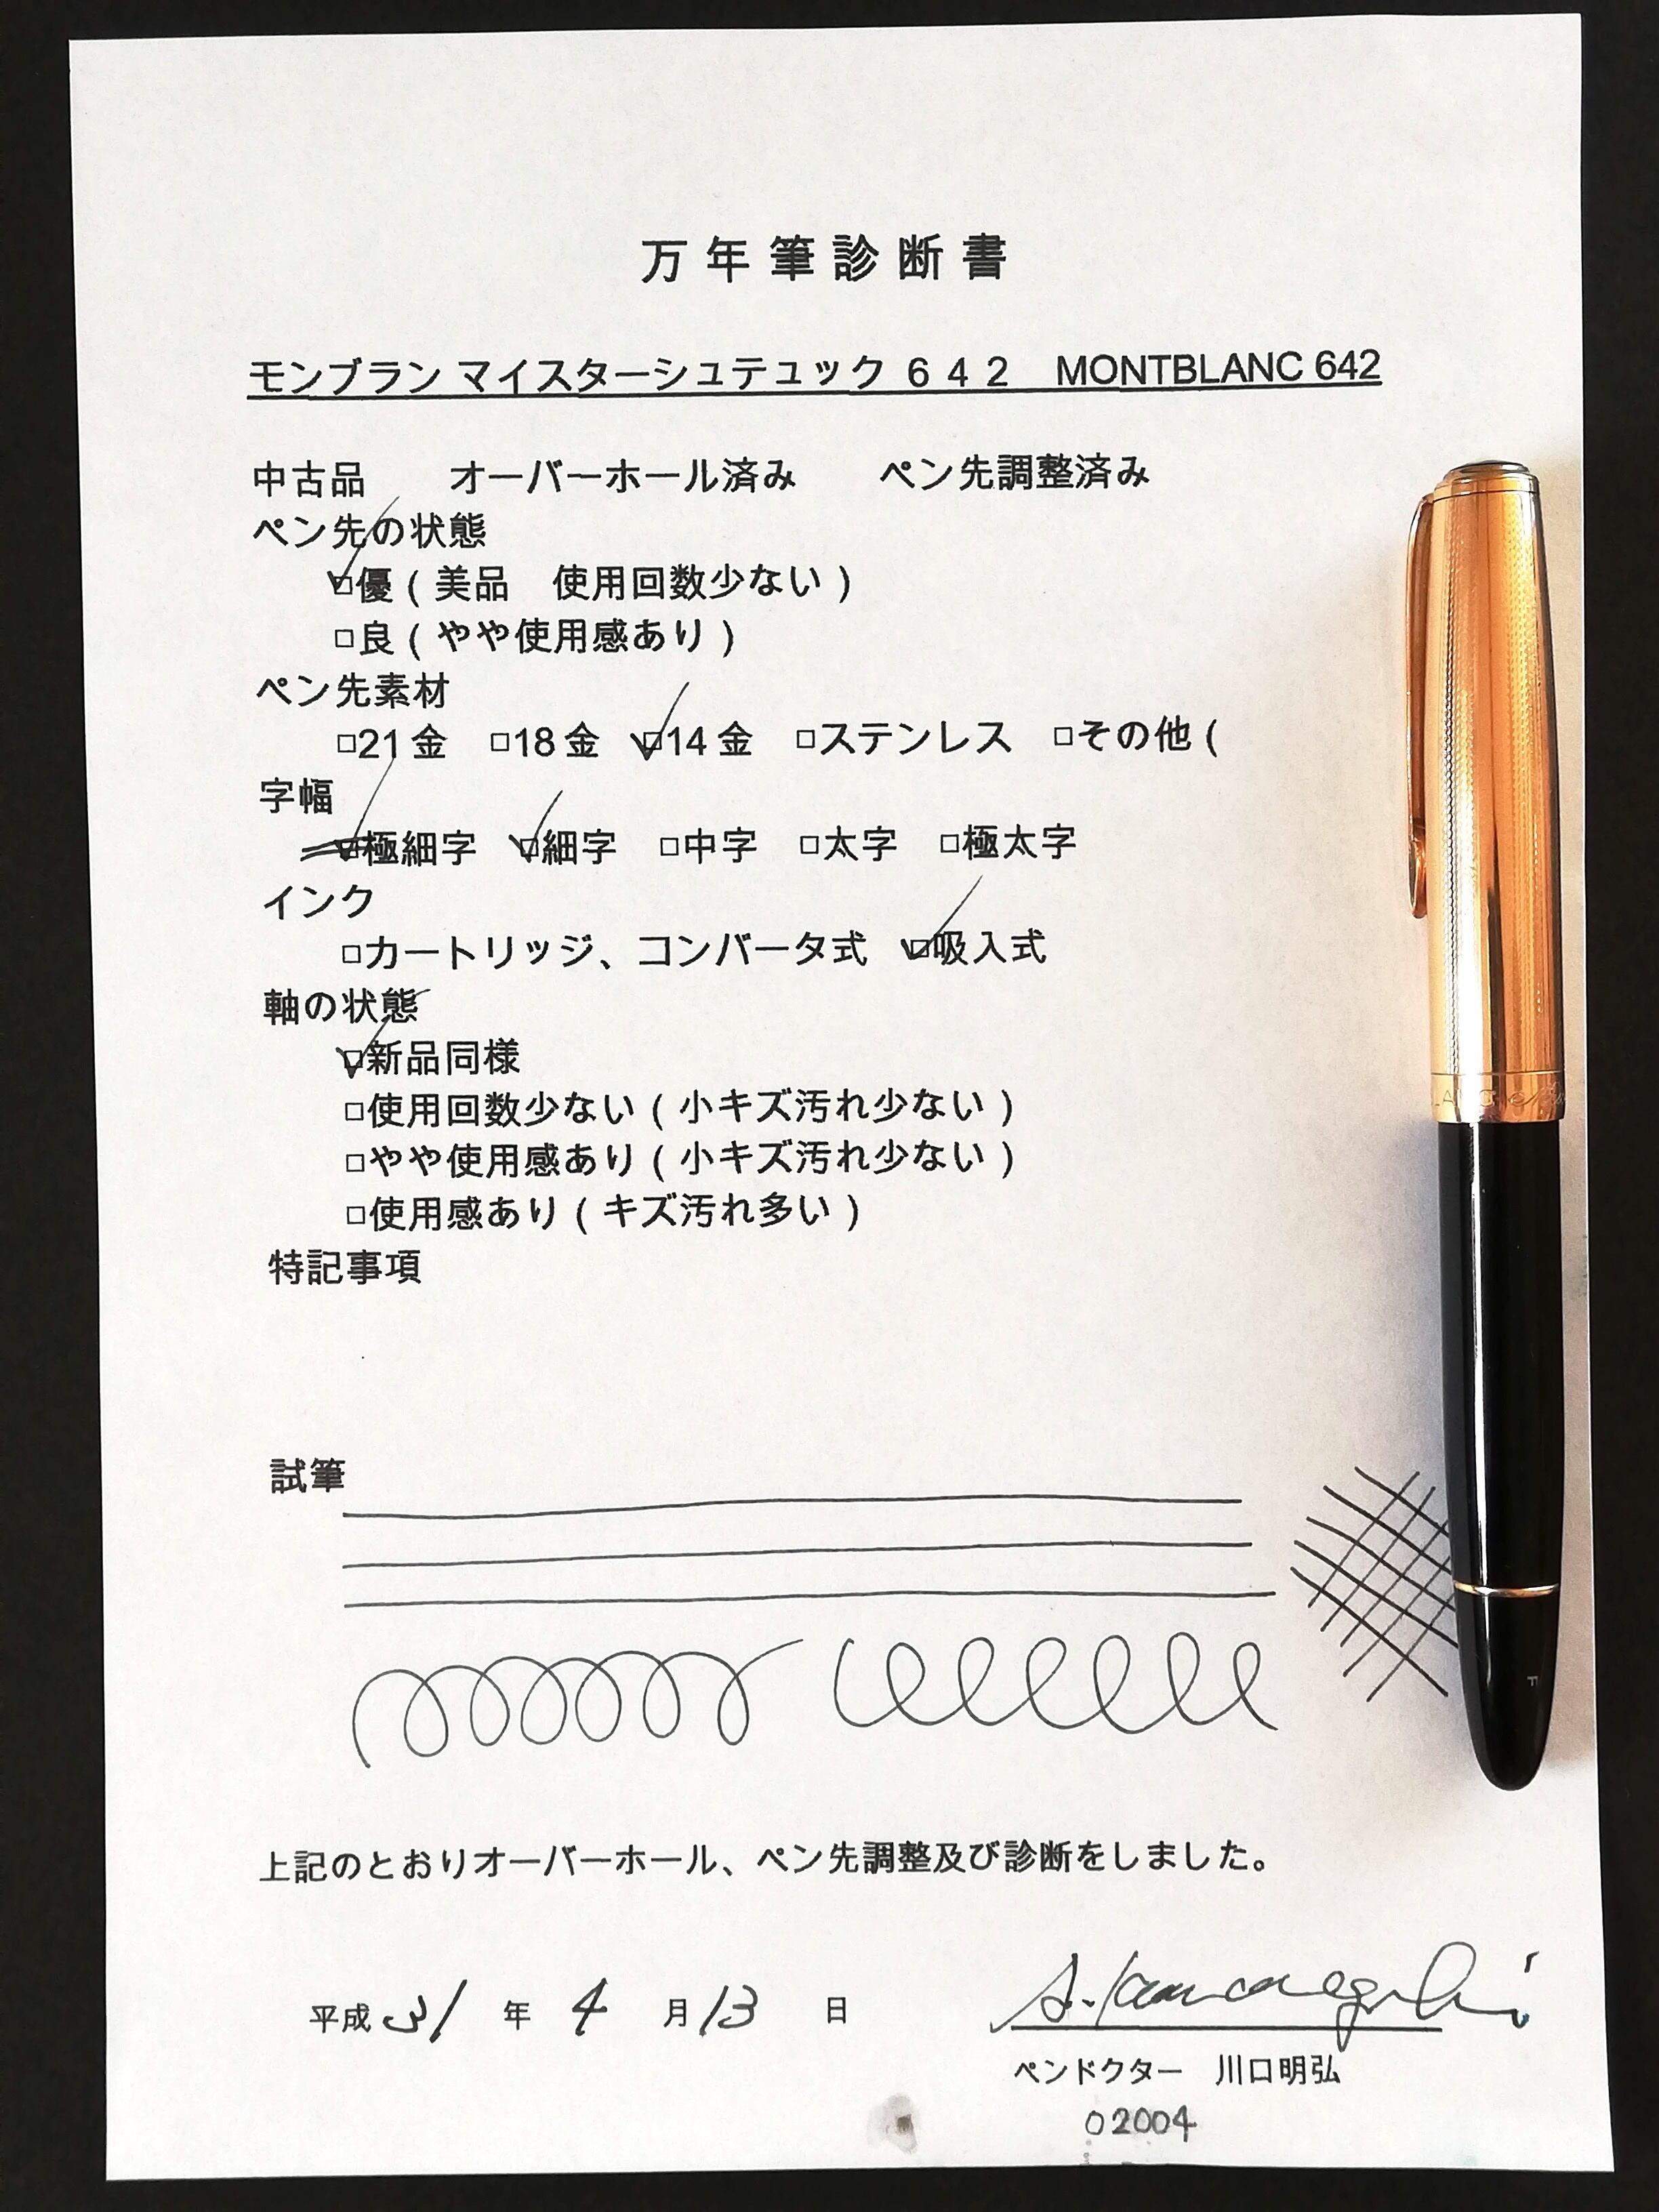 万年筆診断書
モンブラン マイスターシュテュック ６４２　MONTBLANC 642
中古品　オーバーホール済み　ペン先調整済み
ペン先の状態
☑優（美品　使用回数少ない）
□良（やや使用感あり）
ペン先素材
□21金　□18金　☑14金　□ステンレス　□その他（
字幅
☑極細字　☑細字　□中字　□太字　□極太字
インク
□カートリッジ、コンバータ式　☑吸入式
軸の状態
☑新品同様
□使用回数少ない（小キズ汚れ少ない）
□やや使用感あり（小キズ汚れ少ない）
□使用感あり（キズ汚れ多い）
特記事項
試筆
F
上記のとおりオーバーホール、ペン先調整及び診断をしました。
平成31年4月13日
A. Kawaguchi
ペンドクター　川口明弘
02004